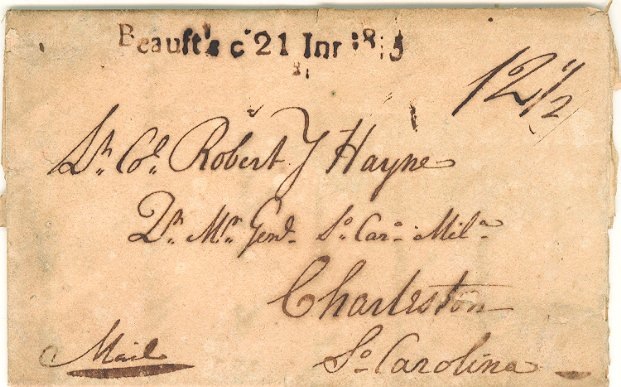 Beauft s c 21 Inr 1815
12 1/2
Lt. Col. Robert Y Hayne
Qr. Mr. Genl. So. Caro. Mila.
Charleston
Mail
So. Carolina